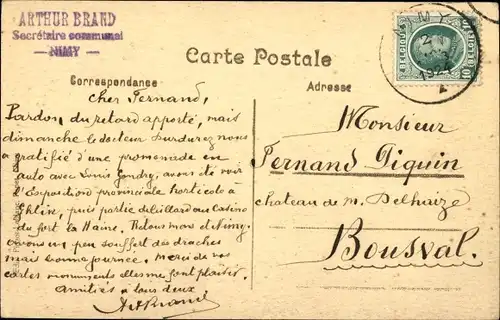 ARTHUR BRAND
Secrétaire communal
— NIMY —
NIMY
1923
BELGIQUE
10
Carte Postale
Correspondance
Adresse
Cher Fernand,
Pardon du retard apporté, mais
dimanche le docteur nous
a gratifié d'une promenade en
auto avec Louis Gondry, avons été voir
l'Exposition provinciale horticole à
puis partie de billard au Casino
du fort la Haine. Retour Mons et Nimy.
Avons un peu souffert des draches
mais bonne journée. Merci de vos
cartes monuments elles me font plaisir.
Amitiés à tous deux
Monsieur
Fernand Piquin
chateau de M. Delhaize
Bousval.